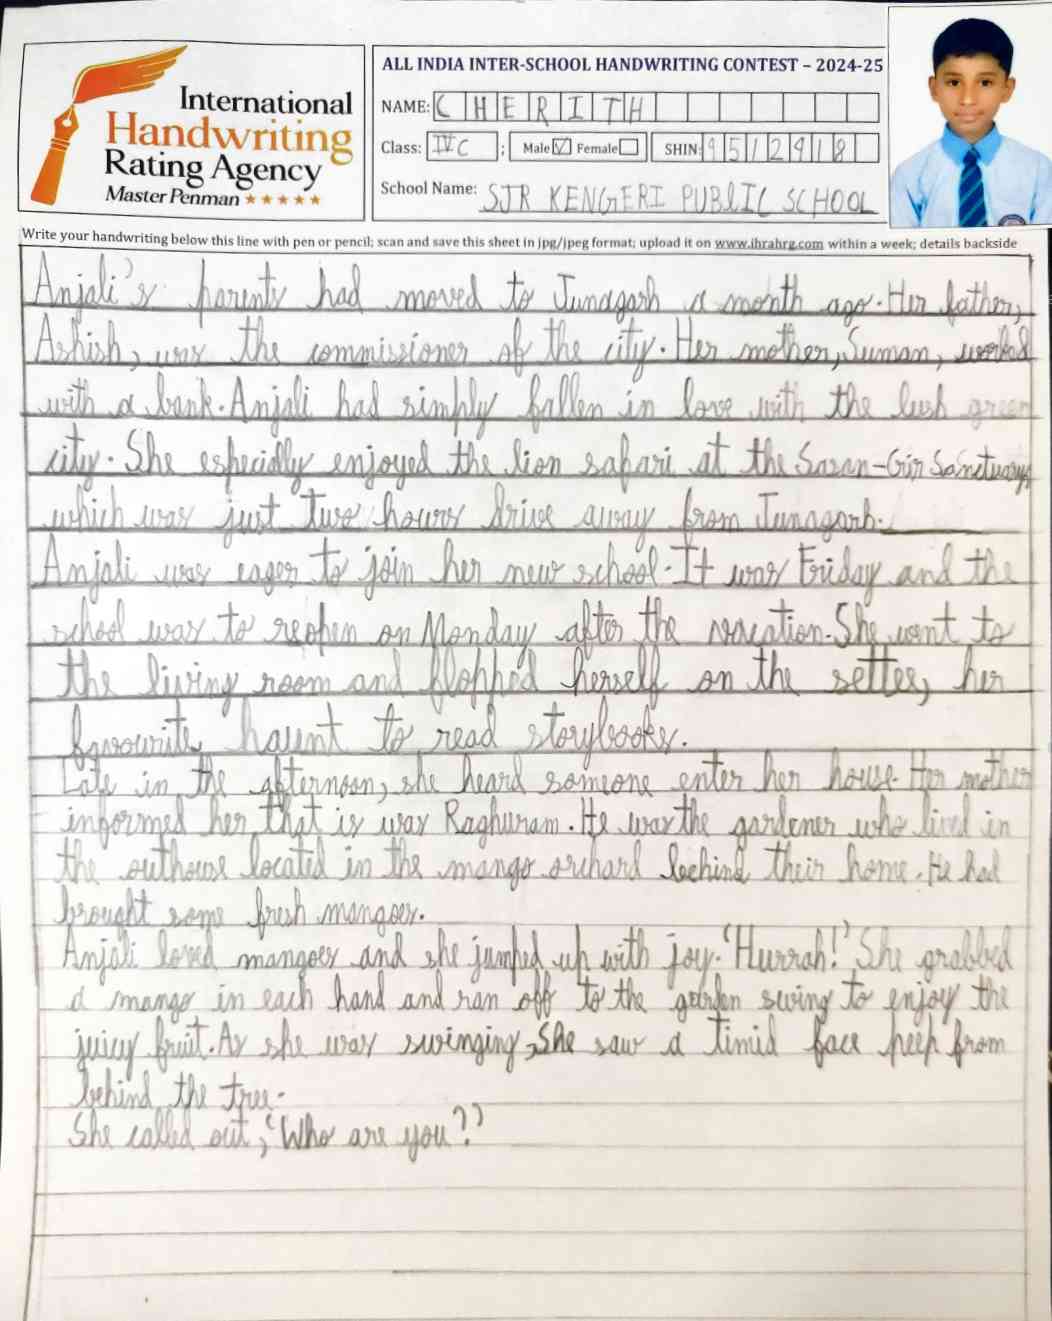 International
Handwriting
Rating Agency
Master Penman
ALL INDIA INTER-SCHOOL HANDWRITING CONTEST – 2024-25
NAME: CHERITH
Class: IV C ; Male Female SHIN: 9512918
School Name: SJR KENGERI PUBLIC SCHOOL
Write your handwriting below this line with pen or pencil; scan and save this sheet in jpg/jpeg format; upload it on www.ihrahrg.com within a week; details backside
Anjali's parents had moved to Junagarh a month ago. Her father,
Ashish, was the commissioner of the city. Her mother, Suman, worked
with a bank. Anjali had simply fallen in love with the lush green
city. She especially enjoyed the lion safari at the Sasan-Gir Sanctuary,
which was just two hours drive away from Junagarh.
Anjali was eager to join her new school. It was Friday and the
school was to reopen on Monday after the vacation. She went to
the living room and flopped herself on the settee, her
favourite haunt to read storybooks.
Late in the afternoon, she heard someone enter her house. Her mother
informed her that is was Raghuram. He was the gardener who lived in
the outhouse located in the mango orchard behind their home. He had
brought some fresh mangoes.
Anjali loved mangoes and she jumped up with joy. 'Hurrah!' She grabbed
a mango in each hand and ran off to the garden swing to enjoy the
juicy fruit. As she was swinging, She saw a timid face peep from
behind the tree.
She called out, 'Who are you?'